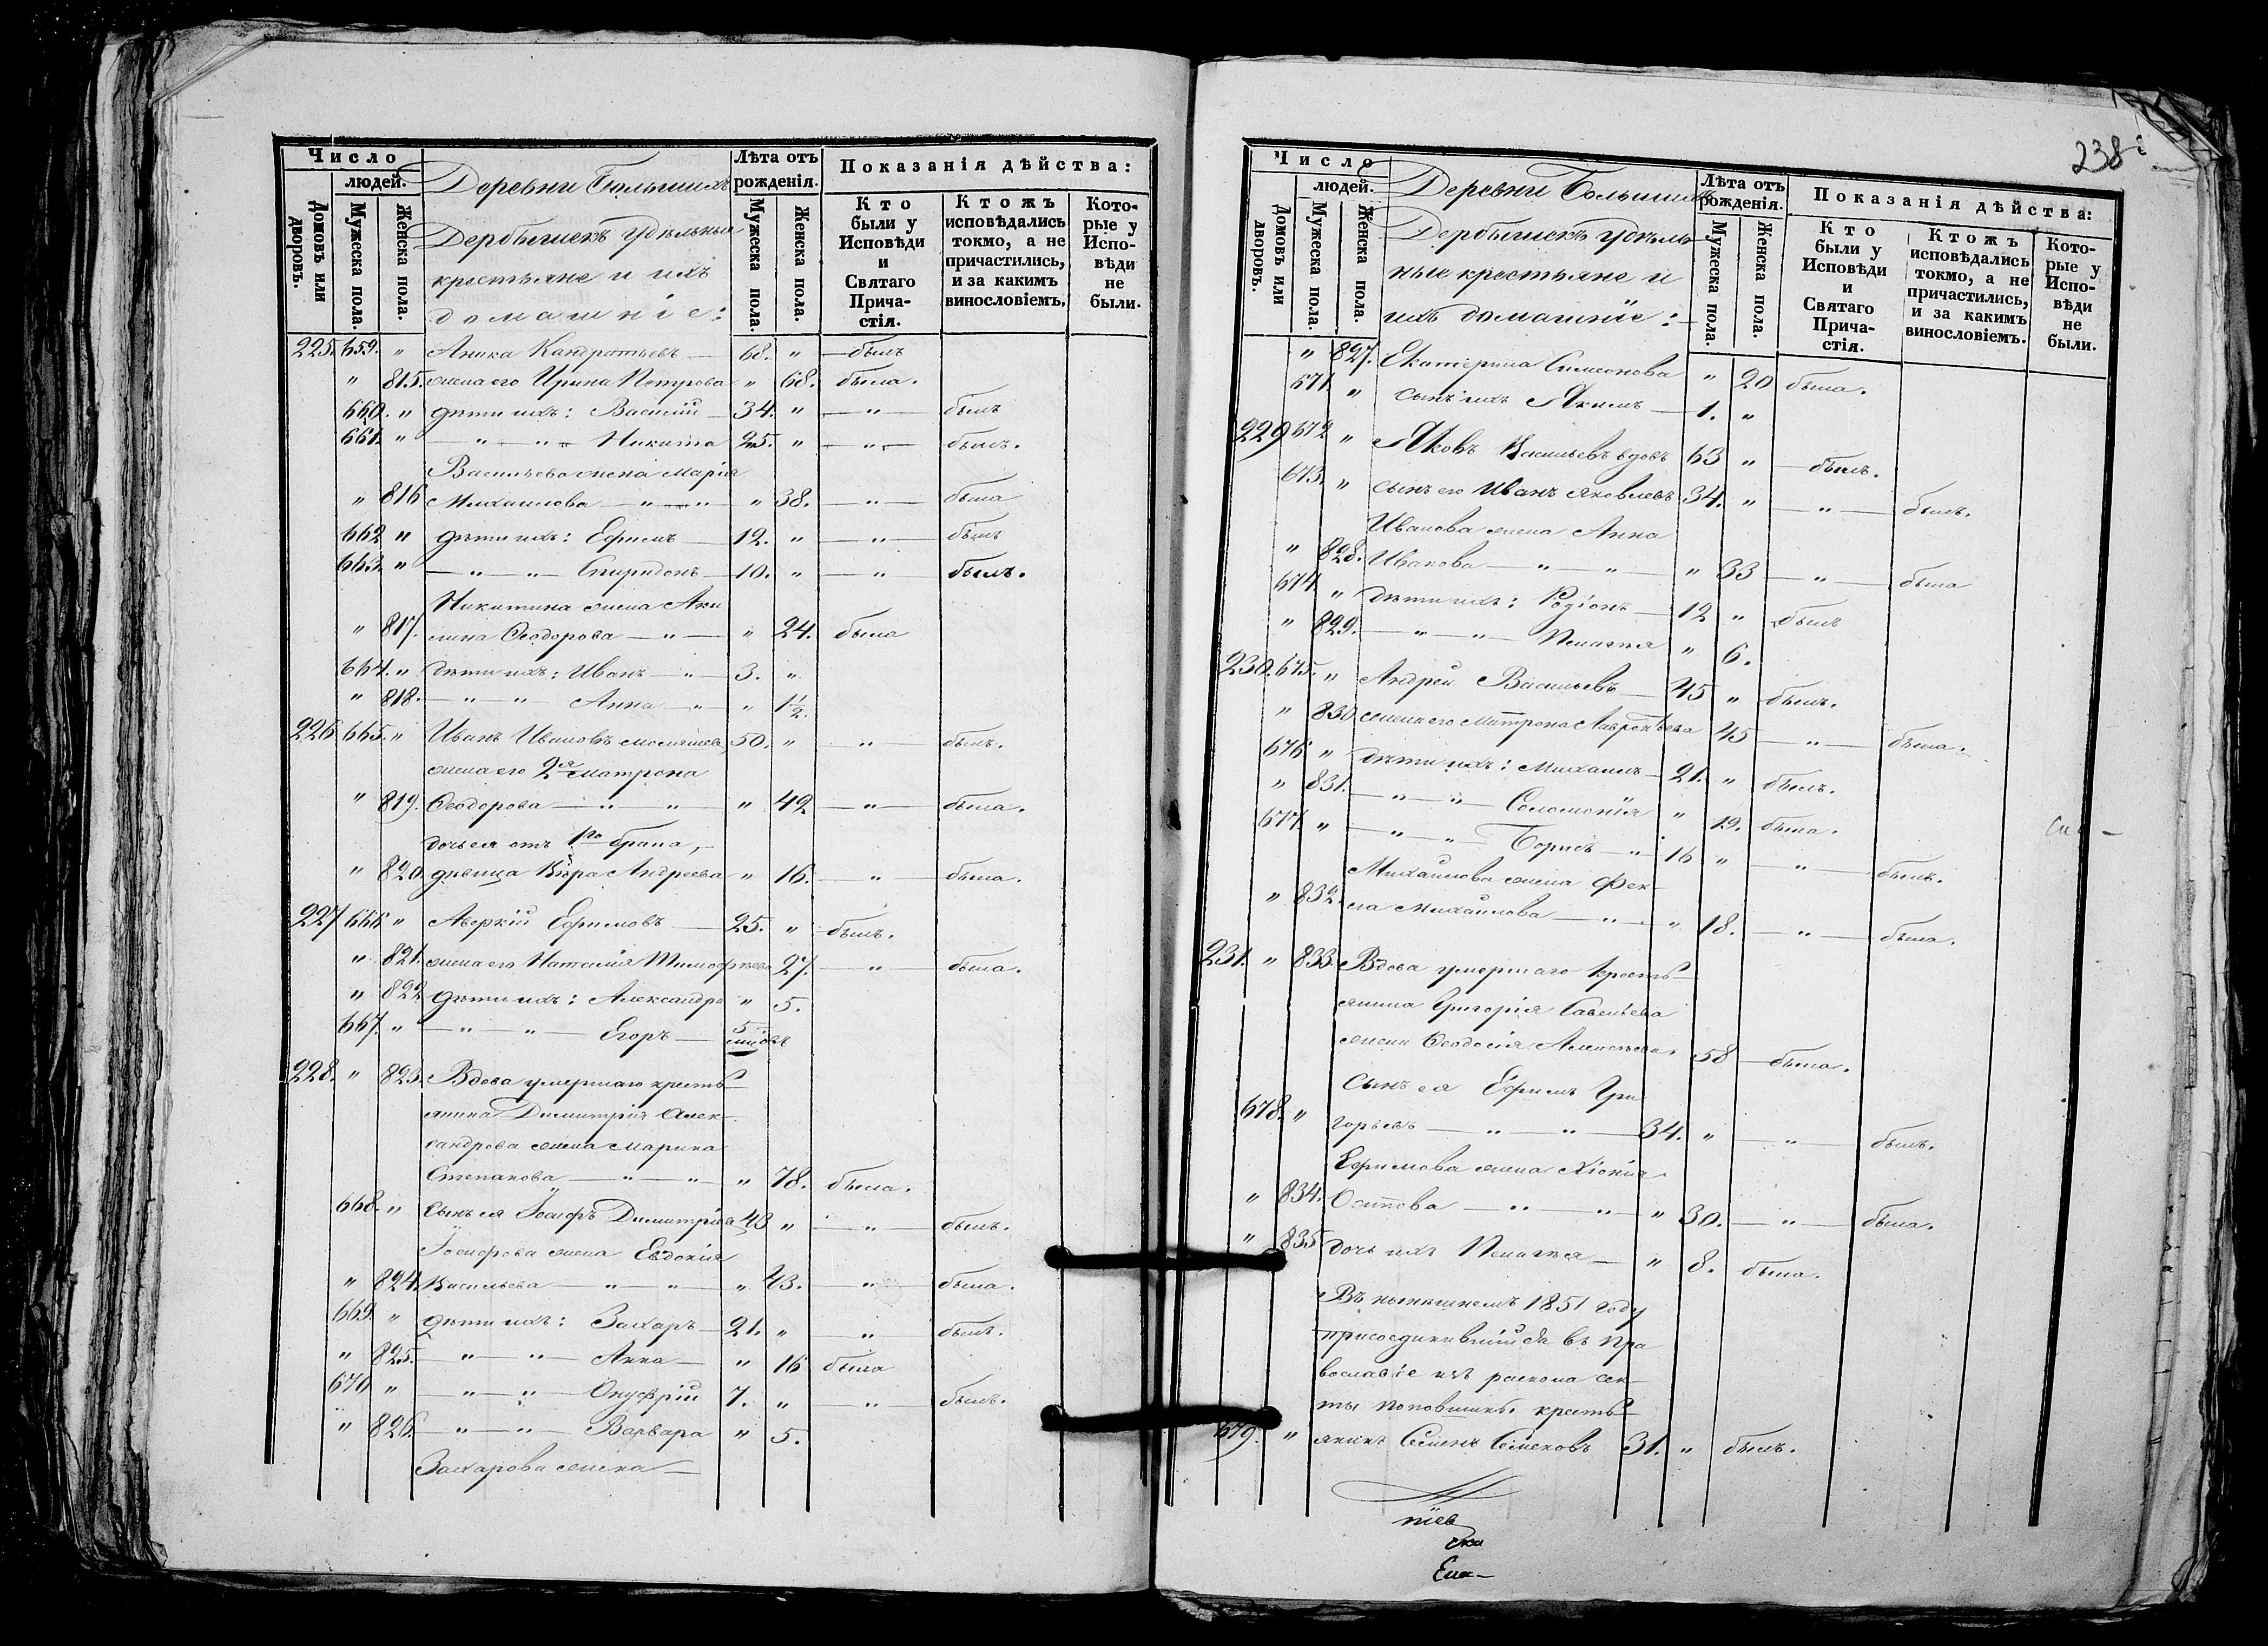 Число людей.
Домовъ или дворовъ.
Мужеска пола.
Женска пола.
Деревни Большихъ
Дербышекъ удѣльныя
крестьяне и ихъ
домашніе:
Лѣта отъ рожденія.
Мужеска пола.
Женска пола.
Показанія дѣйства:
Кто были у Исповѣди и Святаго Прича-стія.
Ктожъ исповѣдались токмо, а не причастились, и за какимъ винословіемъ.
Кото-рые у Испо-вѣди не были.
225. 659. " Аника Кандротьевъ — 68. " — былъ
" 815. жена его Ирина Петрова " 68. была.
660. " дѣти ихъ: Василій — 34. " — " — былъ
661. " — " — " — Никита 25. " — " — былъ.
Васильева жена Марія
" 816 Михаилова — " — " " 38. — " — была
662 " дѣти ихъ: Ефимъ — 12. " — " — былъ
663. " — " — " — Спиридонъ — 10. " — " былъ.
Никитина жена Аки
" 817. лина Ѳеодорова — " — " 24. была
664. " дѣти ихъ: Иванъ — " — 3. "
" 818. — " — " Анна — " " 1½.
226 665. " Иванъ Ивановъ 50. " — " — былъ.
жена его 2я Матрона
" 819. Ѳеодорова — " — " " 42 — " — была.
дочь ея отъ 1го брака, —
" 820. дѣвица Вѣра Андреева " 16. — " — была.
227 666 " Аверкій Ефимовъ — 25. " — былъ.
" 821. жена его Наталія Тимофѣева 27. — " — была.
" 822 дѣти ихъ: Александра " 5.
667. " — " — " — Егоръ — 5
228. " 823. Вдова умершаго кресть-
янина Димитрія Алек-
сандрова жена Марина
Степанова — " — " — " 78. была.
668. " Сынъ ея Іосифъ Димитріевъ 43 " — " — былъ.
Іосифова жена Евдокія
" 824. Васильева — " — " — " 43. " — была.
669. " дѣти ихъ: Захаръ — 21. " " былъ.
" 825. — " — " — Анна — " 16 была
670 " — " — " — Онуфрій 7. " — " былъ.
" 826. — " — " — Варвара " 5.
Захарова жена —
238
Число людей.
Домовъ или дворовъ.
Мужеска пола.
Женска пола.
Деревни Большихъ
Дербышекъ удѣль-
ные крестьяне и
ихъ домашніе:
Лѣта отъ рожденія.
Мужеска пола.
Женска пола.
Показанія дѣйства:
Кто были у Исповѣди и Святаго Прича-стія.
Ктожъ исповѣдались токмо, а не причастились, и за какимъ винословіемъ.
Кото-рые у Испо-вѣди не были.
" 827. Екатерина Симеонова " 20 была.
671. " сынъ ихъ Якимъ — 1. "
229 672 " Яковъ Васильевъ вдовъ 63 " — былъ.
673. " сынъ его Иванъ Яковлевъ 34. " — " — былъ.
Иванова жена Анна
" 828. Иванова — " — " " 33 — " — была
674. " дѣти ихъ: Родіонъ — 12 " былъ
" 829. — " — " — Пелагея " 6.
230. 675. " Андрей Васильевъ — 45 " былъ.
" 830 жена его Матрона Лаврентьева 45 — " — была.
676 " дѣти ихъ: Михаилъ — 21. " былъ.
" 831. — " — " — Соломонія " 19. была.
677. " — " — " — Борисъ — " 16 " — " — былъ.
Михаилова жена Фек-
" 832. ла Михаилова — " — " 18. — " — была.
231. " 833. Вдова умершаго кресть-
янина Григорія Савельева
жена Ѳеодосія Алексѣева. 58 — была.
Сынъ ея Ефимъ Гри
678. " горьевъ — " — " — 34. " — " — былъ.
Ефимова жена Хіонія
" 834. Осипова — " — " — " 30. — " — была.
" 835 дочь ихъ Пелагея — " 8. была.
Въ нынѣшнемъ 1851 году
присоединившійся въ пра
вославіе изъ раскола сек-
ты поповщинъ. кресть-
679. " янинъ Семенъ Семеновъ 31. " былъ.